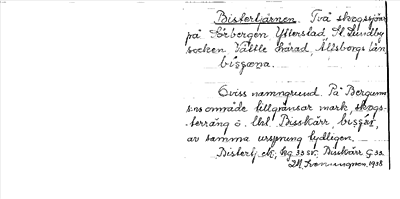 Bistertjärnen. Två skogssjöar
på Sörbergen, Ytterstad St. Lundby
socken Vättle härad, Älfsborgs län
Oviss namngrund. På Bergums
s:ns område tillgränsar mark, skogs-
terräng ö. Utl. Bisskärr, biggär,
av samma ursprung tydligen.
Bistertj. ek., bg 33 sv. Bisskärr G 33
1938